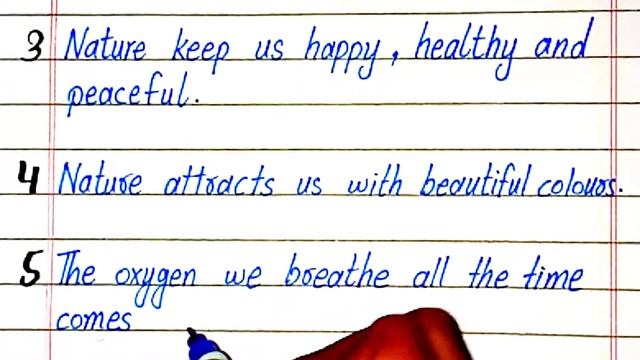 3 Nature keep us happy, healthy and
peaceful.
4 Nature attracts us with beautiful colours.
5 The oxygen we breathe all the time
comes